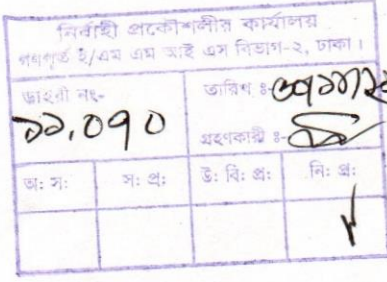 নির্বাহী প্রকৌশলীর কার্যালয়
গণপূর্ত ই/এম এম আই এস বিভাগ-২, ঢাকা।
ডাইরী নং- তারিখ ঃ-
১১.০৭০ গ্রহণকারী ঃ-
অ: স: স: প্র: উ: বি: প্র: নি: প্র: